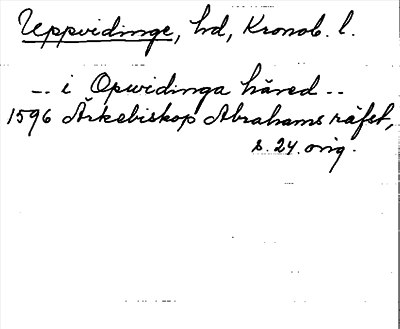 Uppvidinge, hd, Kronob. l.
-- i Opwidinga häred --
1596 Ärkebiskop Abrahams räfst,
s. 24. orig.